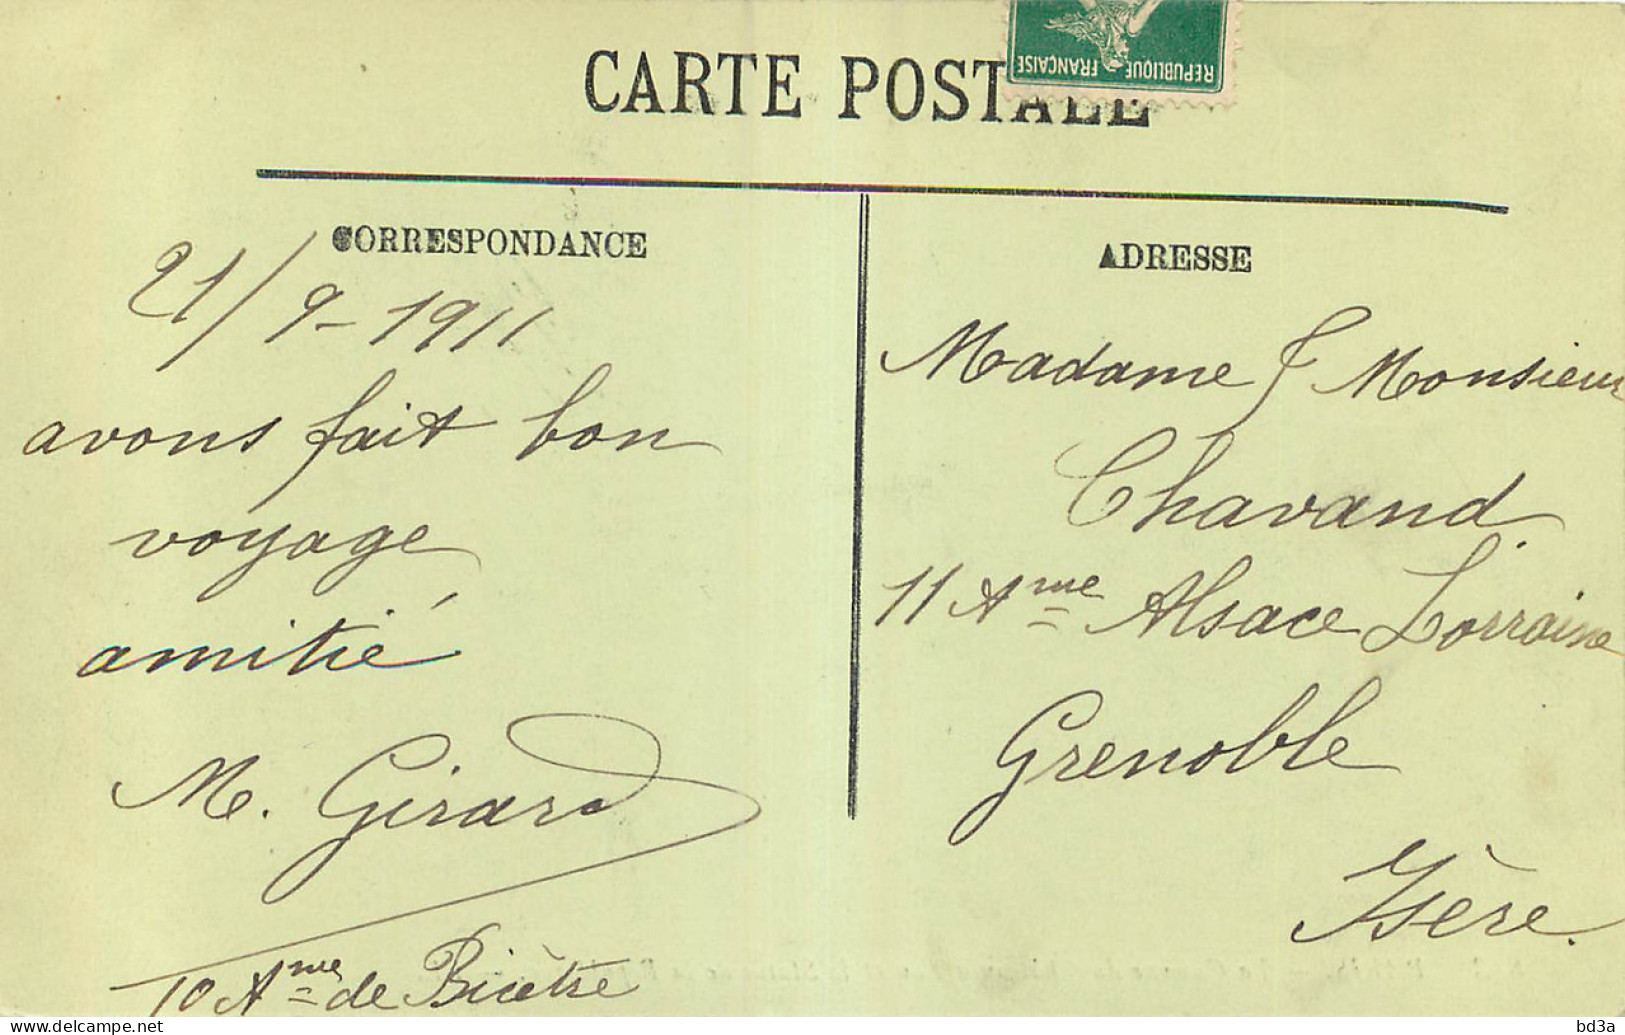 CARTE POSTALE
REPUBLIQUE FRANÇAISE
CORRESPONDANCE
21/9-1911
avons fait bon
voyage
amitié
M. Girard
10 Ame de Bicêtre
ADRESSE
Madame & Monsieur
Chavand
11 Ame Alsace Lorraine
Grenoble
Isère.
bd3a